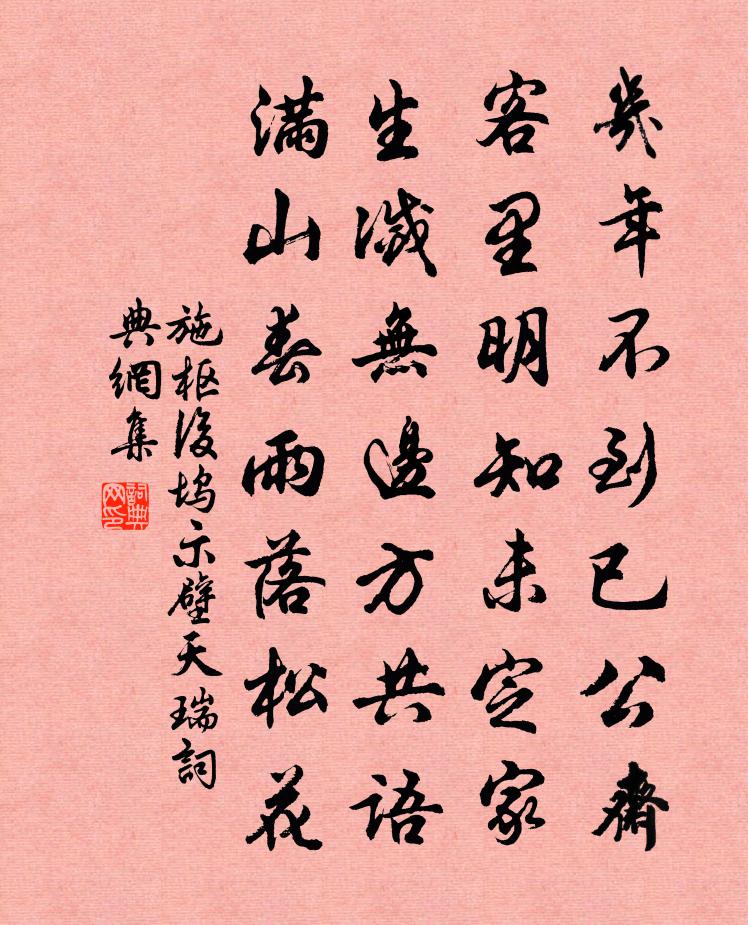 幾年不到已公齋
客里明知未定家
生滅無邊方共語
滿山春雨落松花
施枢後坞示壁天瑞詞
典網集
詞典
网印